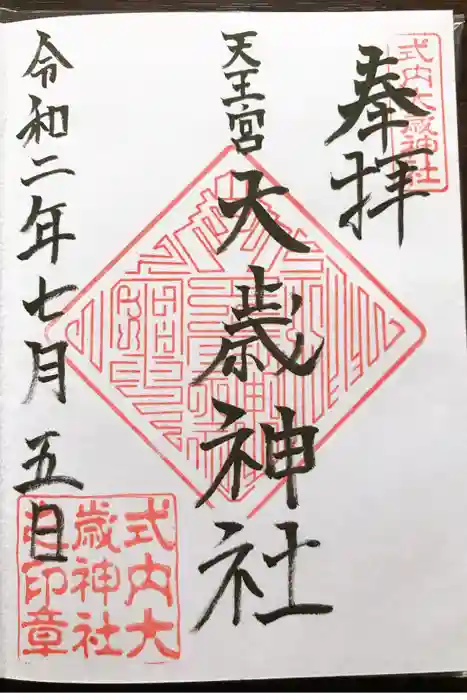 奉拝
式内大歳神社
天王宮
大歳神社
令和二年七月五日
式内大
歳神社
印章